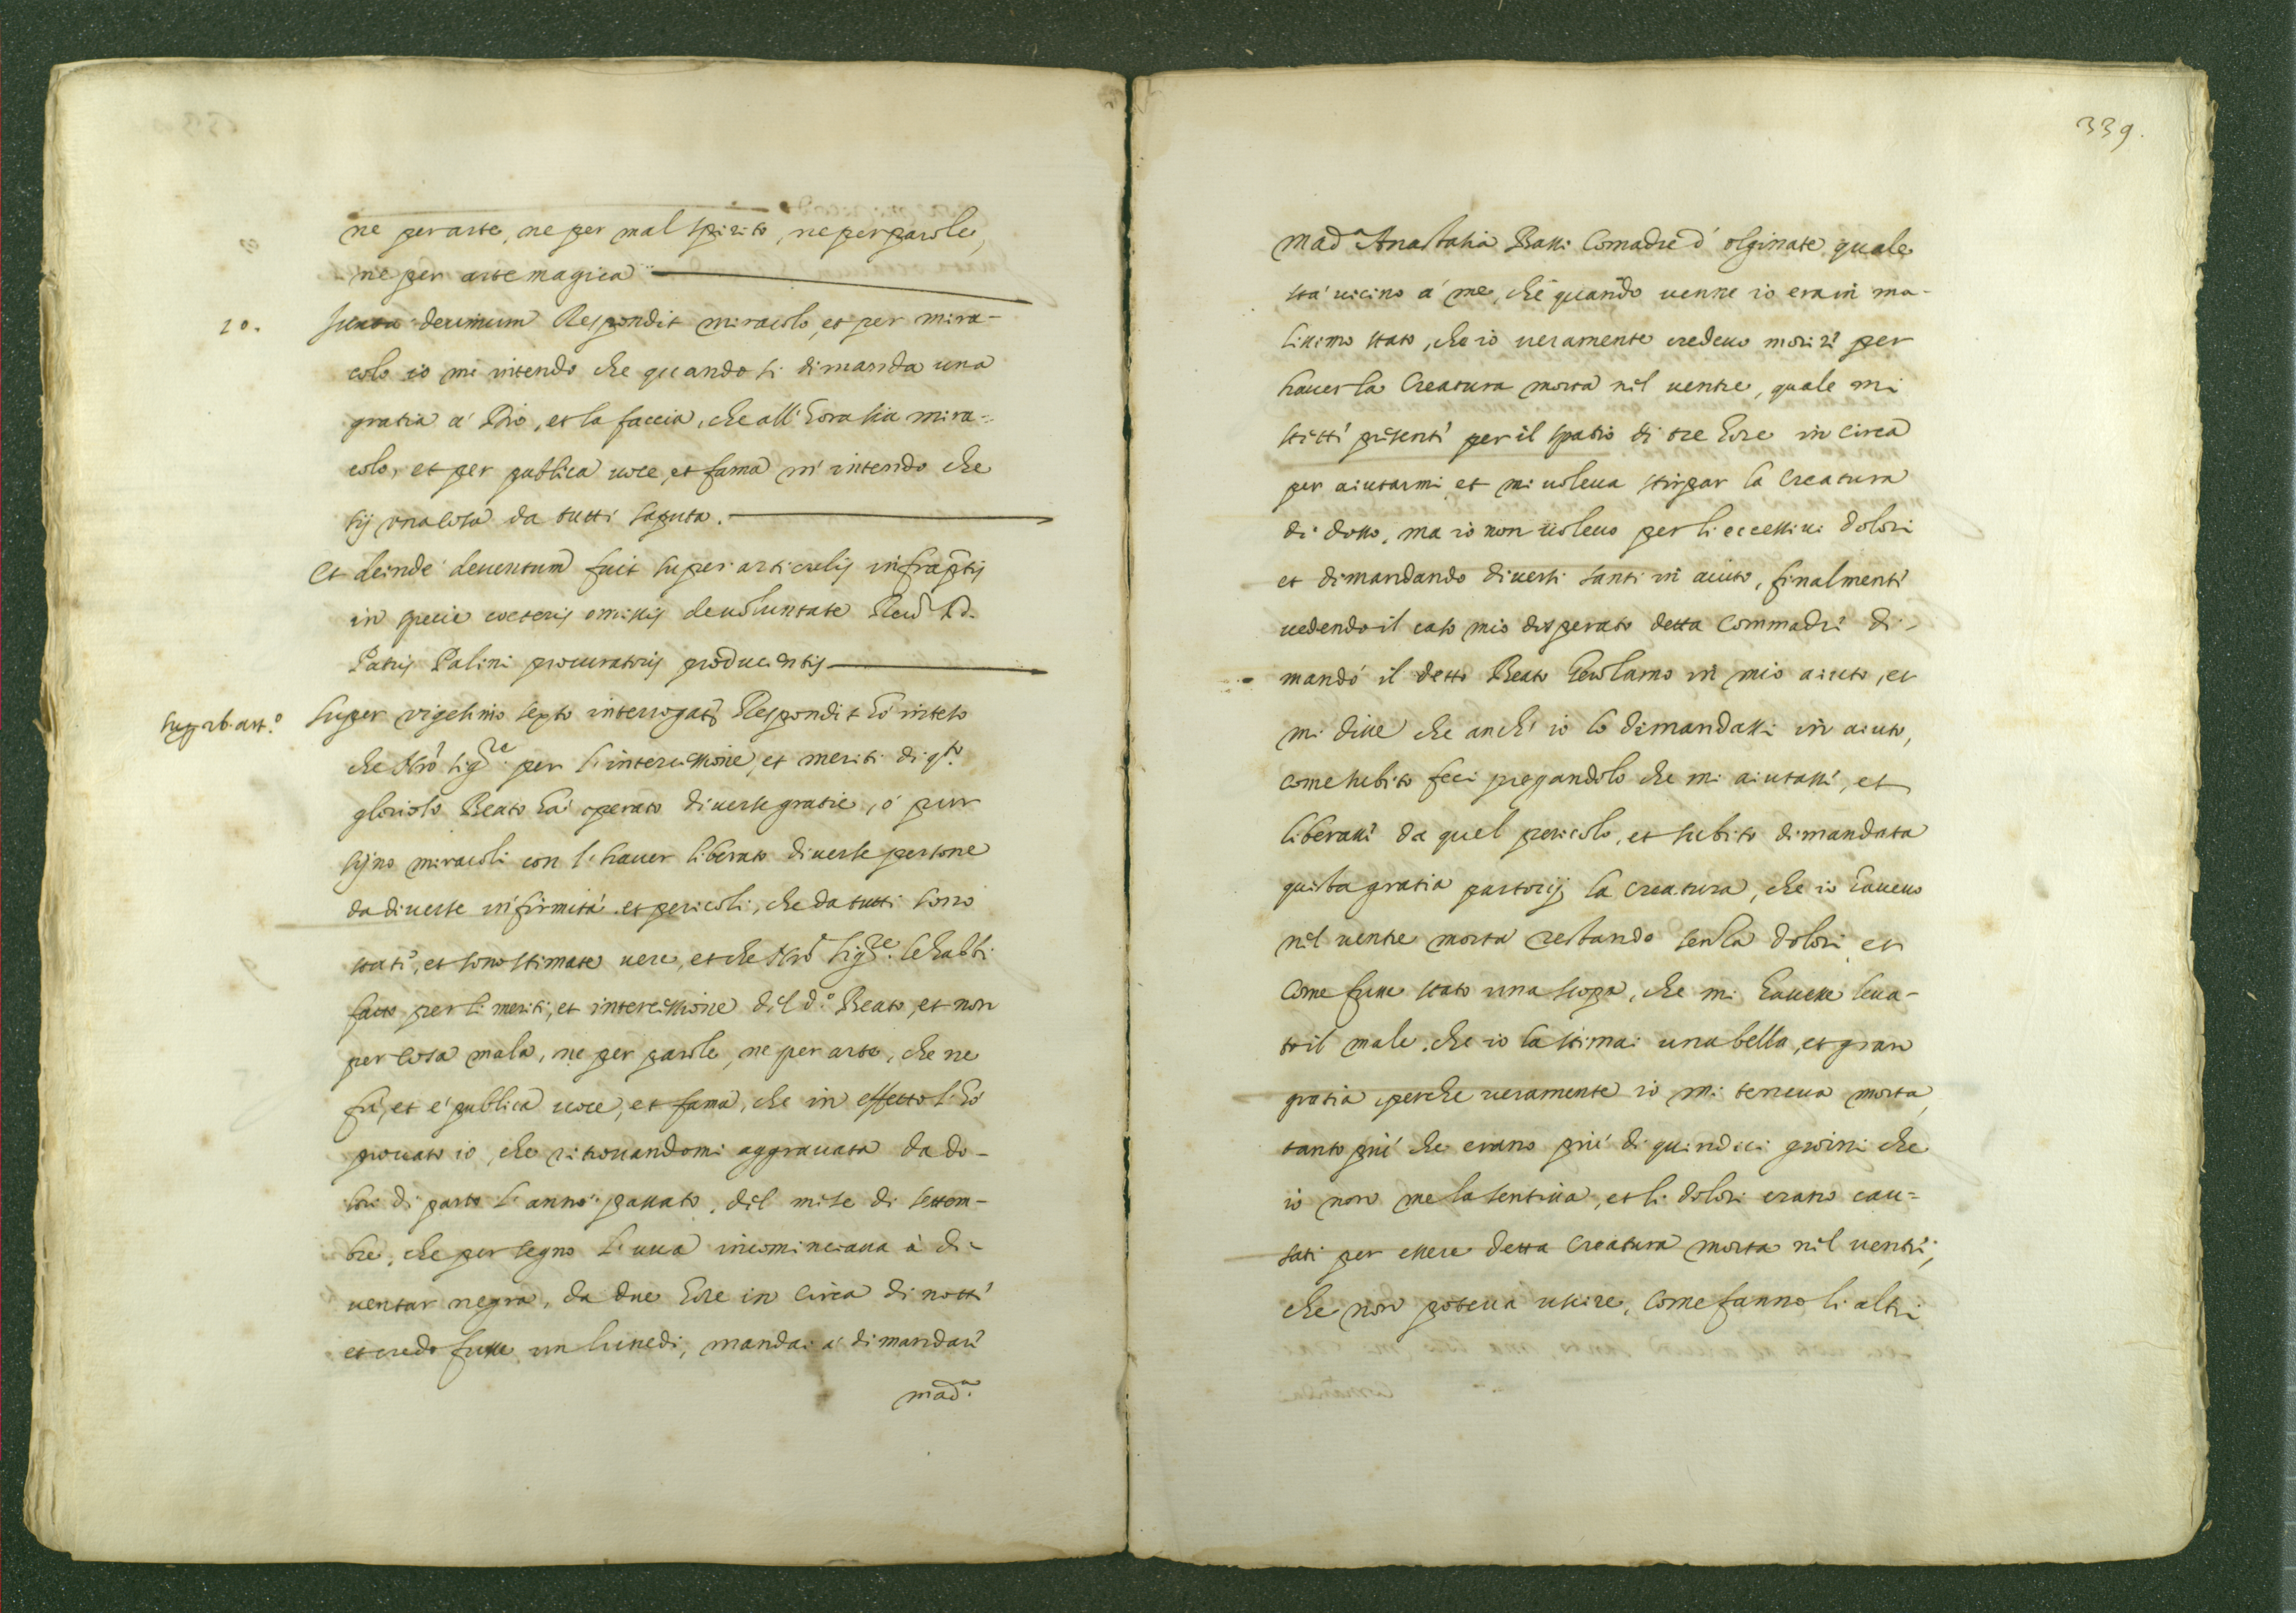 ne per arte, ne per mal spirito, ne per parole,
ne per arte magica
10. Iuxta decimum Respondit miracolo, et per mira-
colo io mi intendo che quando si dimanda una
gratia à Dio, et la faccia, che all'hora sia mira-
colo, et per publica voce, et fama m'intendo che
sij una cosa da tutti saputa.
Et deinde deventum fuit super articulis infraptis
in specie coeteris omissis de voluntate Reud D.
Patris Palini procuratoris producentis
sup 26. art.º Super vigesimo sexto interrogats Respondit hò inteso
che Nrõ Sigre. per l'intercessione, et meriti di qto.
glorioso Beato hà operato diverse gratie, ò pur
sijno miracoli con l'haver liberato diverse persone
da diverse infirmità et pericoli, che da tutti sono
stati, et sono stimate vere, et che Nrõ Sigre. le habbi
fatto per li meriti, et intercessione del d.º Beato, et non
per cosa mala, ne per parole, ne per arte, che ne
fù, et è publica voce, et fama, che in effetto l'hò
provato io, che ritrovandomi aggravata da do-
lori di parto l'anno passato, del mese di settem-
bre, che per segno l'uva incominciava à di-
ventar negra, da due hore in circa di notte
et credo fusse un lunedi, mandai à dimandare
mad.ª
339.
mad.ª Anastasia Bassi Comadre d'olginate quale
stà vicino à me, che quando venne io era in ma-
lissimo stato, che io veramente credevo morire per
haver la Creatura morta nel ventre, quale mi
stette presente per il spatio di tre hore in circa
per aiutarmi et mi voleva stirpar la Creatura
di dosso, ma io non volevo per li eccessivi dolori
et dimandando diversi santi in aiuto, finalmente
vedendo il caso mio disperato detta Commadre di-
mandò il detto Beato Gerolamo in mio aiuto, et
mi disse che anch'io lo dimandassi in aiuto,
come subito feci pregandolo che mi aiutasse, et
liberasse da quel pericolo, et subito dimandata
questa gratia partorij la Creatura, che io havevo
nel ventre morta restando senza dolori et
come fusse stato una scopa, che mi havesse leva-
to il male, che io la stimai una bella, et gran
gratia perche veramente io mi teneva morta,
tanto più che erano più di quindeci giorni che
io non me la sentiva, et li dolori erano cau-
sati per essere detta Creatura morta nel ventre,
che non poteva uscire, come fanno li altri